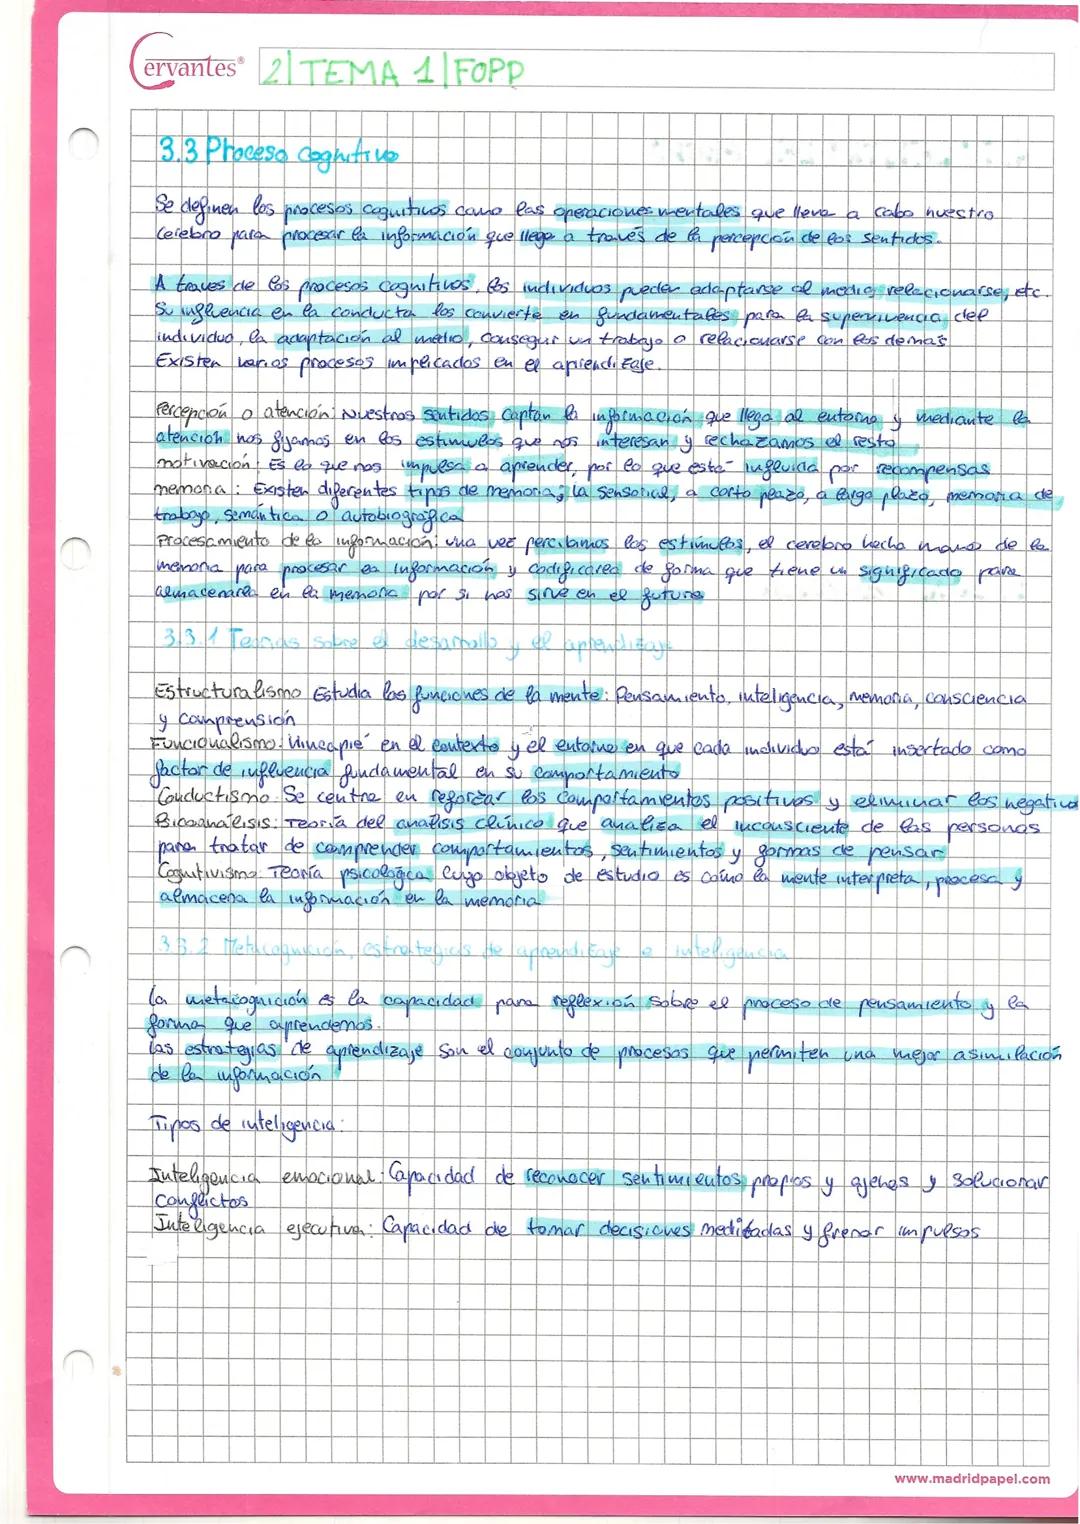 Cervantes®
2|TEMA 1|FOPP
3.3 Proceso cognitivo
Se definen los procesos cognitivos como las operaciones mentales que lleva a cabo nuestro
cerebro para procesar la información que llega a través de la percepción de los sentidos.
A traves de los procesos cognitivos, los individuos pueden adaptarse al medio, relacionarse, etc.
Su influencia en la conducta los convierte en fundamentales para la supervivencia del
individuo, la adaptación al medio, conseguir un trabajo o relacionarse con los demás
Existen varios procesos implicados en el aprendizaje.
Percepción o atención: Nuestros sentidos captan la información que llega al entorno y mediante la
atención nos fijamos en los estimulos que nos interesan y rechazamos el resto
motivación: Es lo que nos impulsa a aprender, por lo que está influida por recompensas
memoria: Existen diferentes tipos de memoria; la sensorial, a corto plazo, a largo plazo, memoria de
trabajo, semántica o autobiográfica
Procesamiento de la información: una vez percibimos los estímulos, el cerebro hecha mano de la
memoria para procesar la información y codificarla de forma que tiene un significado para
almacenarla en la memoria por si nos sirve en el futuro
3.3.1 Teorias sobre el desarrollo y el aprendizaje
Estructuralismo Estudia las funciones de la mente: Pensamiento, inteligencia, memoria, consciencia
y comprensión
Funcionalismo: Hincapié en el contexto y el entorno en que cada individuo está insertado como
factor de influencia fundamental en su comportamiento
Conductismo: Se centra en reforzar los comportamientos positivos y eliminar los negativos
: Teoría del analisis clínico que analiza el inconsciente de las personas
para tratar de comprender comportamientos, sentimientos y formas de pensar
Cognitivismo: Teoría psicologica cuyo objeto de estudio es cómo la mente interpreta, procesa y
almacena la información en la memoria
3.3.2 Metacognición, estrategias de aprendizaje e inteligencia
La metacognición es la capacidad para reflexión sobre el proceso de pensamiento y la
forma que aprendemos.
Las estrategias de aprendizaje son el conjunto de procesos que permiten una mejor asimilación
de la información
Tipos de inteligencia:
Inteligencia emocional: Capacidad de reconocer sentimientos propios y ajenos y solucionar
conflictos
Inteligencia ejecutiva: Capacidad de tomar decisiones meditadas y frenar impulsos
www.madridpapel.com